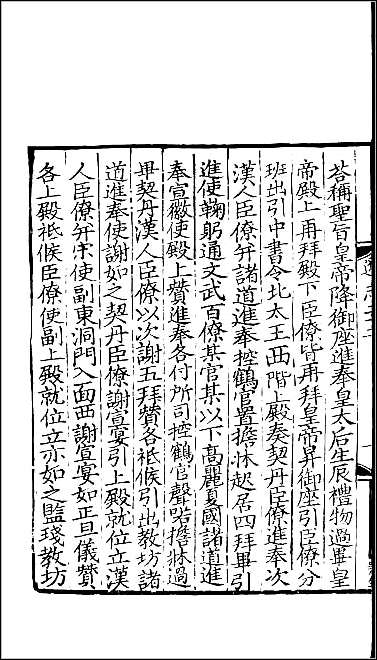 荅稱聖旨皇帝降御座進奉皇太后生辰禮物過畢皇
帝殿上再拜殿下臣僚皆再拜皇帝昇御座引臣僚分
班出引中書令北大王西階上殿奏契丹臣僚進奉次
漢人臣僚并諸道進奉控鶴官置擔牀起居四拜畢引
進使鞠躬通文武百僚某官某以下高麗夏國諸道進
奉宣徽使殿上贊進奉各付所司控鶴官聲喏擔牀過
畢契丹漢人臣僚以次謝五拜贊各祗候引出教坊諸
道進奉使謝如之契丹臣僚謝宣宴引上殿就位立漢
人臣僚并宋使副東洞門入面西謝宣宴如正旦儀贊
各上殿祗候臣僚使副上殿就位立亦如之監琖教坊